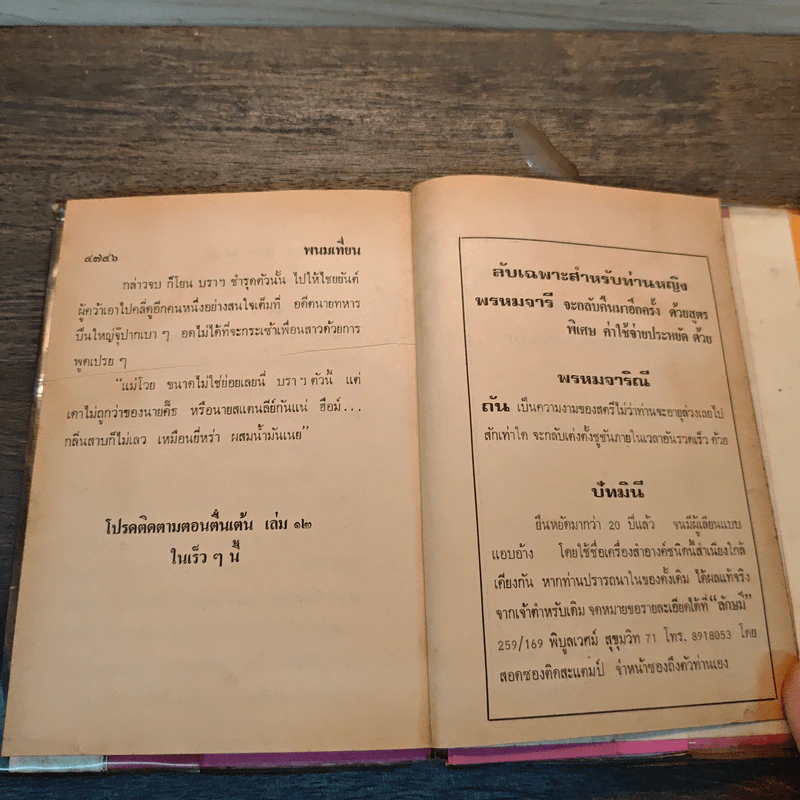 ๔๗๔๖
พนมเทียน
กล่าวจบ ก็โยน บราฯ ชำรุดตัวนั้น ไปให้ไชยยันต์
ผู้คว้าเอาไปคลี่ดูอีกคนหนึ่งอย่างสนใจเต็มที่ อดีตนายทหาร
ปืนใหญ่จุ๊ปากเบา ๆ อดไม่ได้ที่จะกระเซ้าเพื่อนสาวด้วยการ
พูดเปรย ๆ
“แม่โวย ขนาดไม่ใช่ย่อยเลยนี่ บราฯ ตัวนี้ แต่
เดาไม่ถูกว่าของนายคีธ หรือนายสแตนลีย์กันแน่ ฮือม์...
กลิ่นสาบก็ไม่เลว เหมือนยี่หร่า ผสมน้ำมันเนย”
โปรดติดตามตอนตื่นเต้น เล่ม ๑๒
ในเร็ว ๆ นี้
ลับเฉพาะสำหรับท่านหญิง
พรหมจารี จะกลับคืนมาอีกครั้ง ด้วยสูตร
พิเศษ ค่าใช้จ่ายประหยัด ด้วย
พรหมจาริณี
ถัน เป็นความงามของสตรีไม่ว่าท่านจะอายุล่วงเลยไป
สักเท่าใด จะกลับเต่งตั้งชูชันภายในเวลาอันรวดเร็ว ด้วย
ปัทมินี
ยืนหยัดมากว่า 20 ปีแล้ว จนมีผู้เลียนแบบ
แอบอ้าง โดยใช้ชื่อเครื่องสำอางค์ชนิดนี้สำเนียงใกล้
เคียงกัน หากท่านปรารถนาในของดั้งเดิม ได้ผลแท้จริง
จากเจ้าตำหรับเดิม จดหมายขอรายละเอียดได้ที่ “ลักษมี”
259/169 พิบูลเวศม์ สุขุมวิท 71 โทร. 8918053 โดย
สอดซองติดสะแตมป์ จ่าหน้าซองถึงตัวท่านเอง